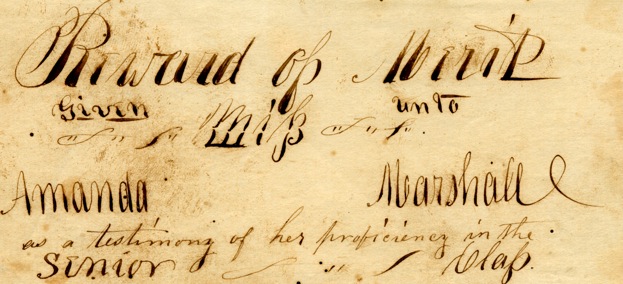 Reward of Merit
Given unto
Miſs
Amanda Marshall
as a testimony of her proficiency in the
Senior " Claſs.